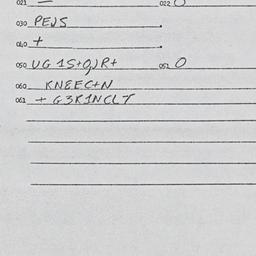 021 — 022 O
030 PEJS .
040 + .
050 UG 1S+O,)R+ 051 O
060 KNEEC+N
061 + G3K1NCLT